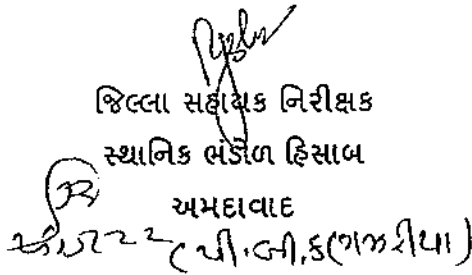 જિલ્લા સહાયક નિરીક્ષક
સ્થાનિક ભંડોળ હિસાબ
અમદાવાદ
(પી.બી.ક(ગઝરીયા)